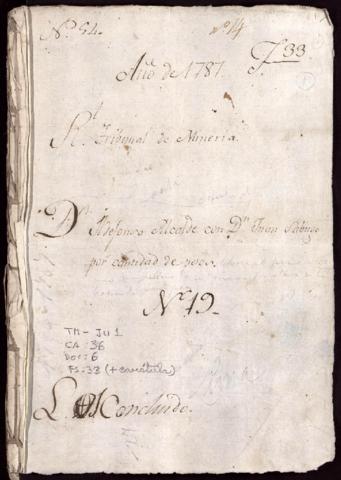 Nº 54.
nº 14
F. 33
Año de 1787.
Rl. Tribunal de Mineria.
Dn. Ildefonso Alcalde con Dn. Juan
por cantidad de pesos.
Nº 19.
TM - JU 1
CA: 36
DOC: 6
FS: 33 (+ carátula)
L
Concluido.